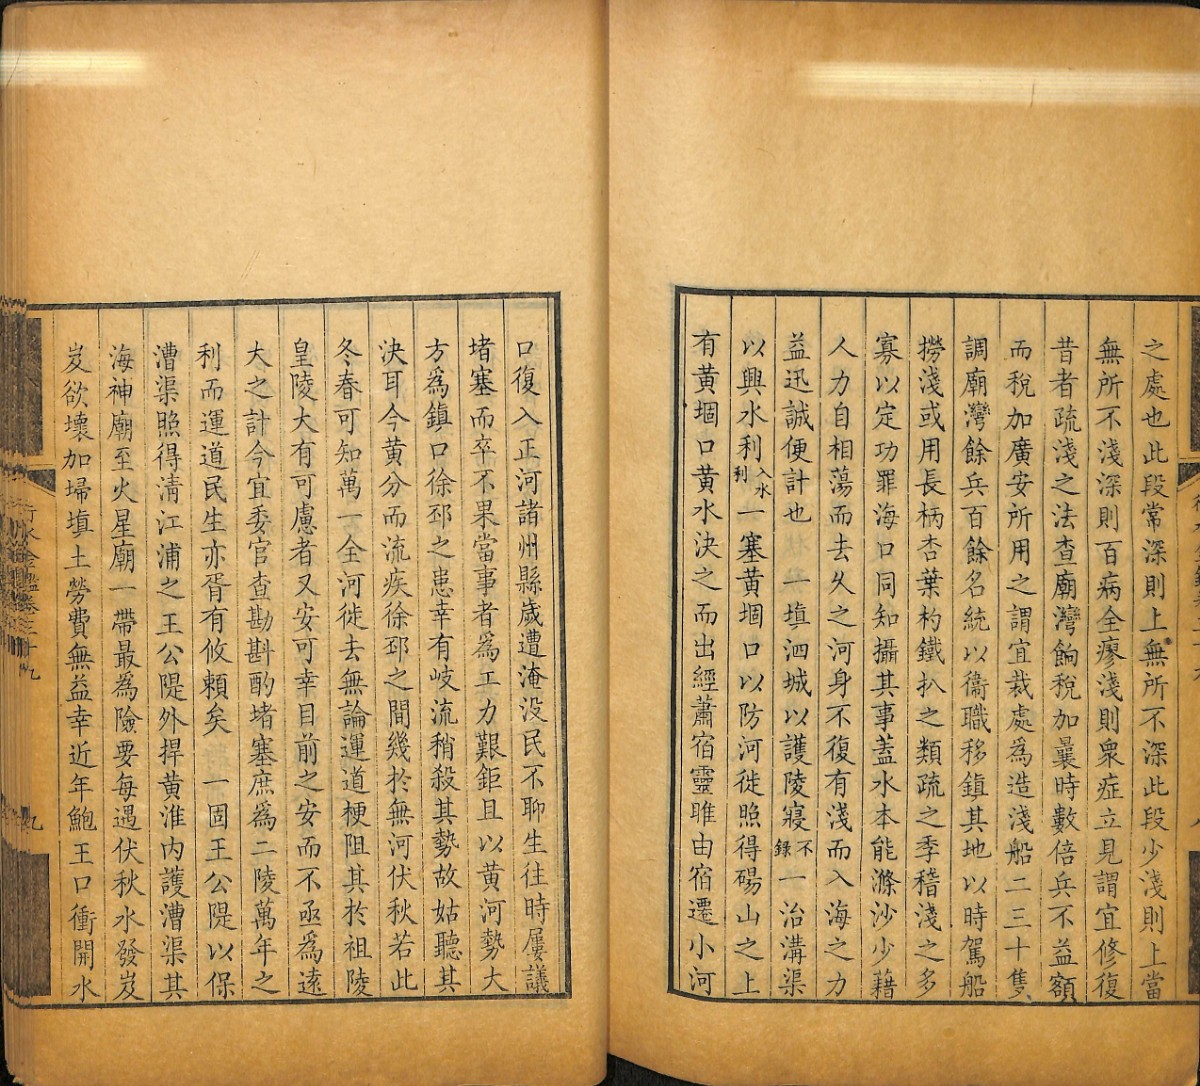 之處也此段常深則上無所不深此段少淺則上當
無所不淺深則百病全瘳淺則衆症立見謂宜修復
昔者疏淺之法查廟灣餉稅加曩時數倍兵不益額
而稅加廣安所用之謂宜裁處為造淺船二三十隻
調廟灣餘兵百餘名統以衞職移鎮其地以時駕船
撈淺或用長柄杏葉杓鐵扒之類疏之季稽淺之多
寡以定功罪海口同知攝其事蓋水本能滌沙少藉
人力自相蕩而去久之河身不復有淺而入海之力
益迅誠便計也 一填泗城以護陵寢不錄一治溝渠
以興水利入水利一塞黃堌口以防河徙照得碭山之上
有黃堌口黃水決之而出經蕭宿靈睢由宿遷小河
口復入正河諸州縣歲遭淹没民不聊生往時屢議
堵塞而卒不果當事者爲工力艱鉅且以黃河勢大
方爲鎮口徐邳之患幸有岐流稍殺其勢故姑聽其
決耳今黃分而流疾徐邳之間幾於無河伏秋若此
冬春可知萬一全河徙去無論運道梗阻其於祖陵
皇陵大有可慮者又安可幸目前之安而不亟爲遠
大之計今宜委官查勘斟酌堵塞庶爲二陵萬年之
利而運道民生亦胥有攸賴矣 一固王公隄以保
漕渠照得清江浦之王公隄外捍黃淮内護漕渠其
海神廟至火星廟一帶最為險要每遇伏秋水發岌
岌欲壞加埽填土勞費無益幸近年鮑王口衝開水
行水金鑑卷三十九
九